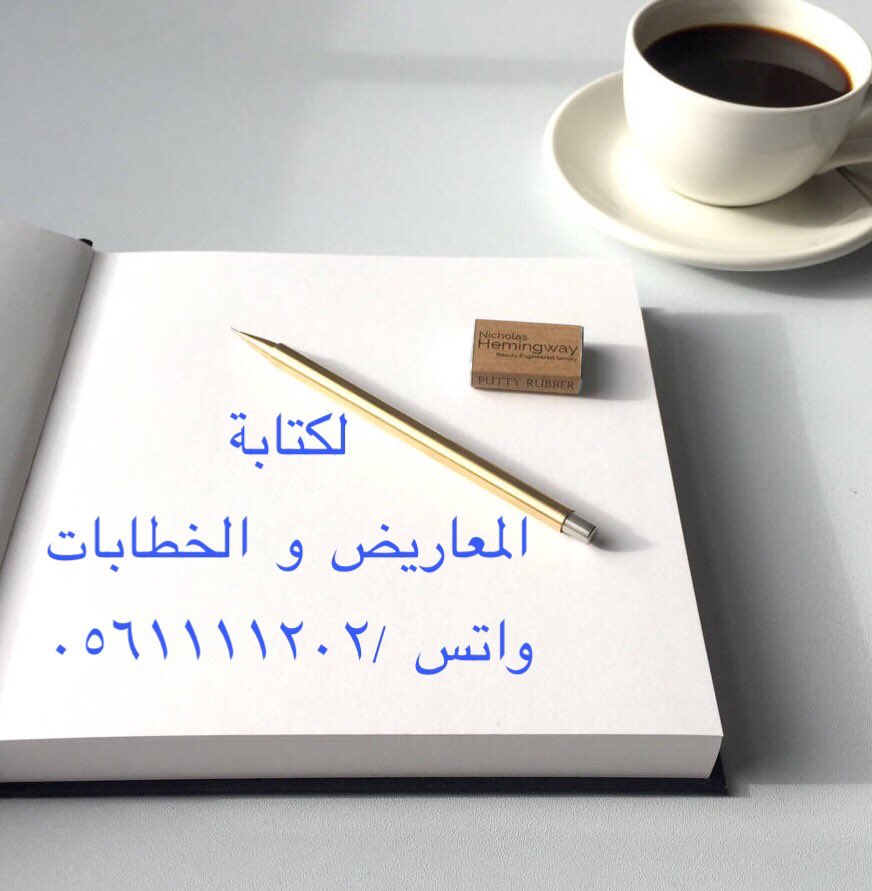 Nicholas
Hemingway
Beauty Engineered Simply
PUTTY RUBBER
لكتابة
المعاريض و الخطابات
واتس /٠٥٦١١١١٢٠٢